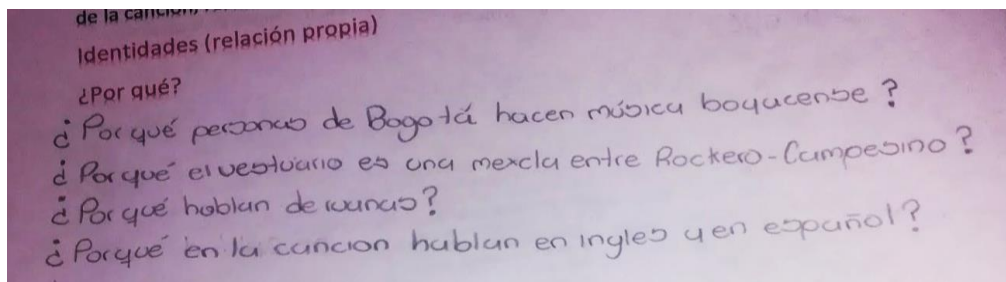 de la canción,
Identidades (relación propia)
¿Por qué?
¿Por qué personas de Bogotá hacen música boyacense?
¿Por qué el vestuario es una mexcla entre Rockero-Campesino?
¿Por qué hablan de runas?
¿Porque en la cancion hablan en ingles y en español?